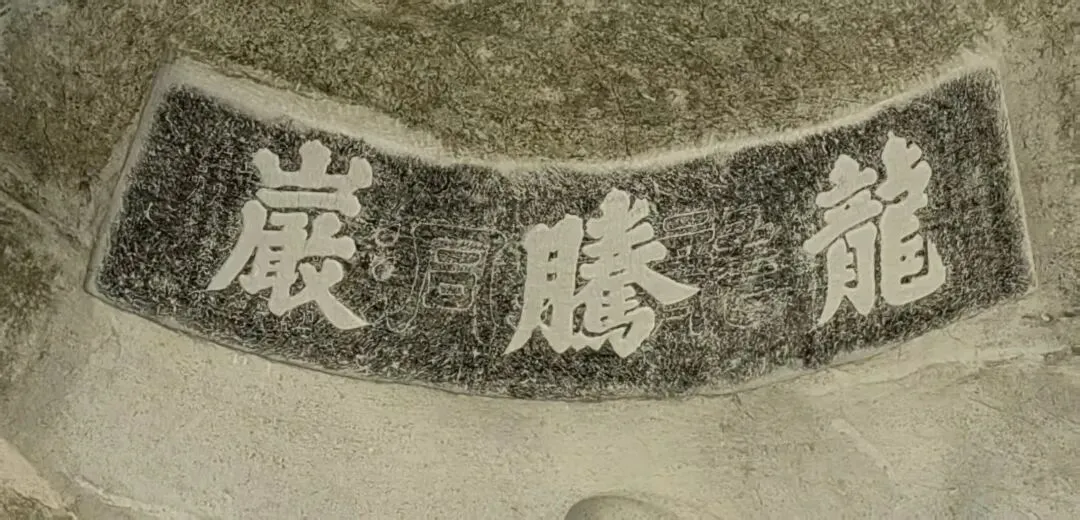 龍騰巖